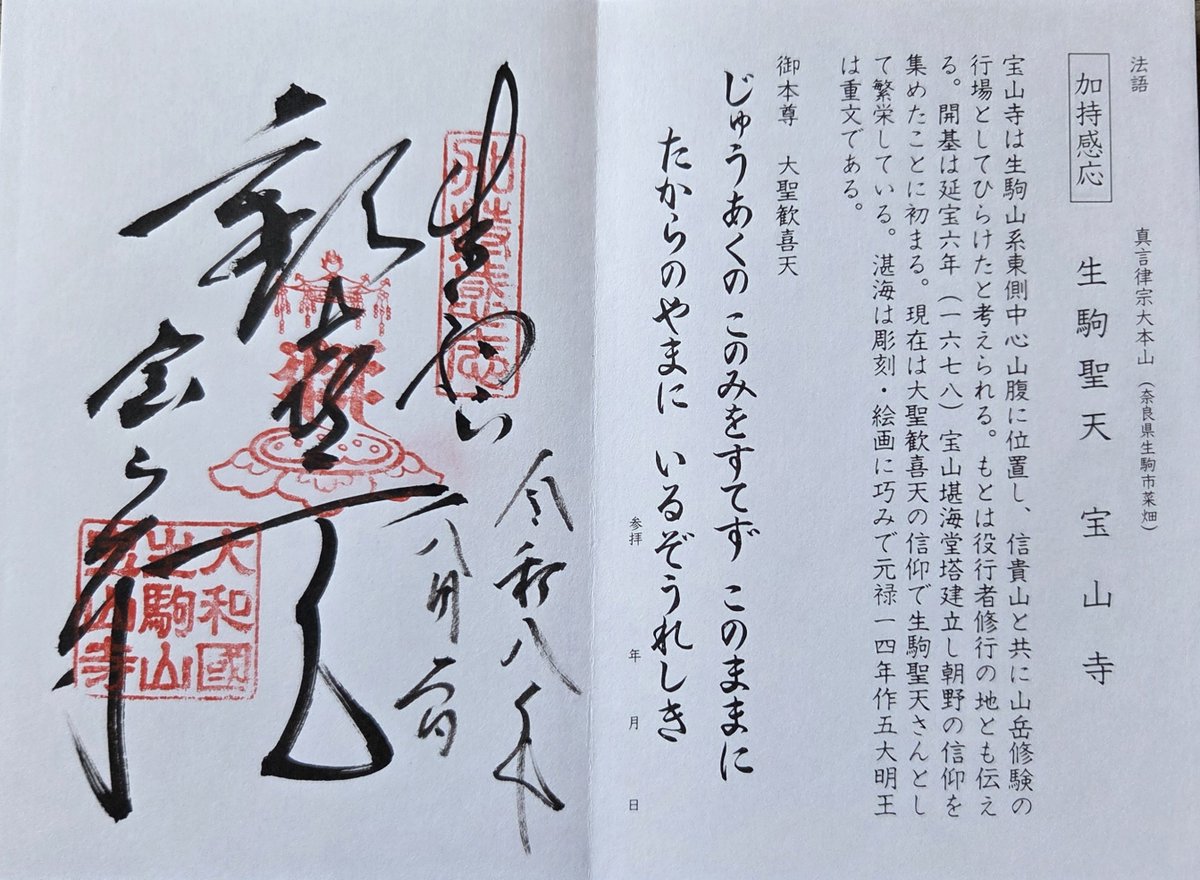 法語
真言律宗大本山(奈良県生駒市菜畑)
加持感応 生駒聖天 宝山寺
宝山寺は生駒山系東側中心山腹に位置し、信貴山と共に山岳修験の
行場としてひらけたと考えられる。もとは役行者修行の地とも伝え
る。開基は延宝六年(一六七八)宝山堪海堂塔建立し朝野の信仰を
集めたことに初まる。現在は大聖歓喜天の信仰で生駒聖天さんとし
て繁栄している。湛海は彫刻・絵画に巧みで元禄一四年作五大明王
は重文である。
御本尊 大聖歓喜天
じゅうあくの このみをすてず このままに
たからのやまに いるぞうれしき
参拝 年 月 日
令和八年
生駒山
加持感応
歓喜天
宝山寺
大和國
生駒山
宝山寺